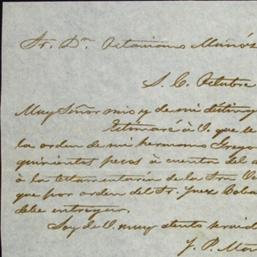 Sr. Dn. Octaviano Muñós
S. C. Octubre
Muy Señor mio y de mi disting
Estimaré à V. que te
la orden de mi hermano Grego
quinientos pesos à cuenta del
à la testamentaria de la Sra
que por orden del Sr. Juez Coba
debe entregar.
Soy de V. muy atento servid
J. P. Mar